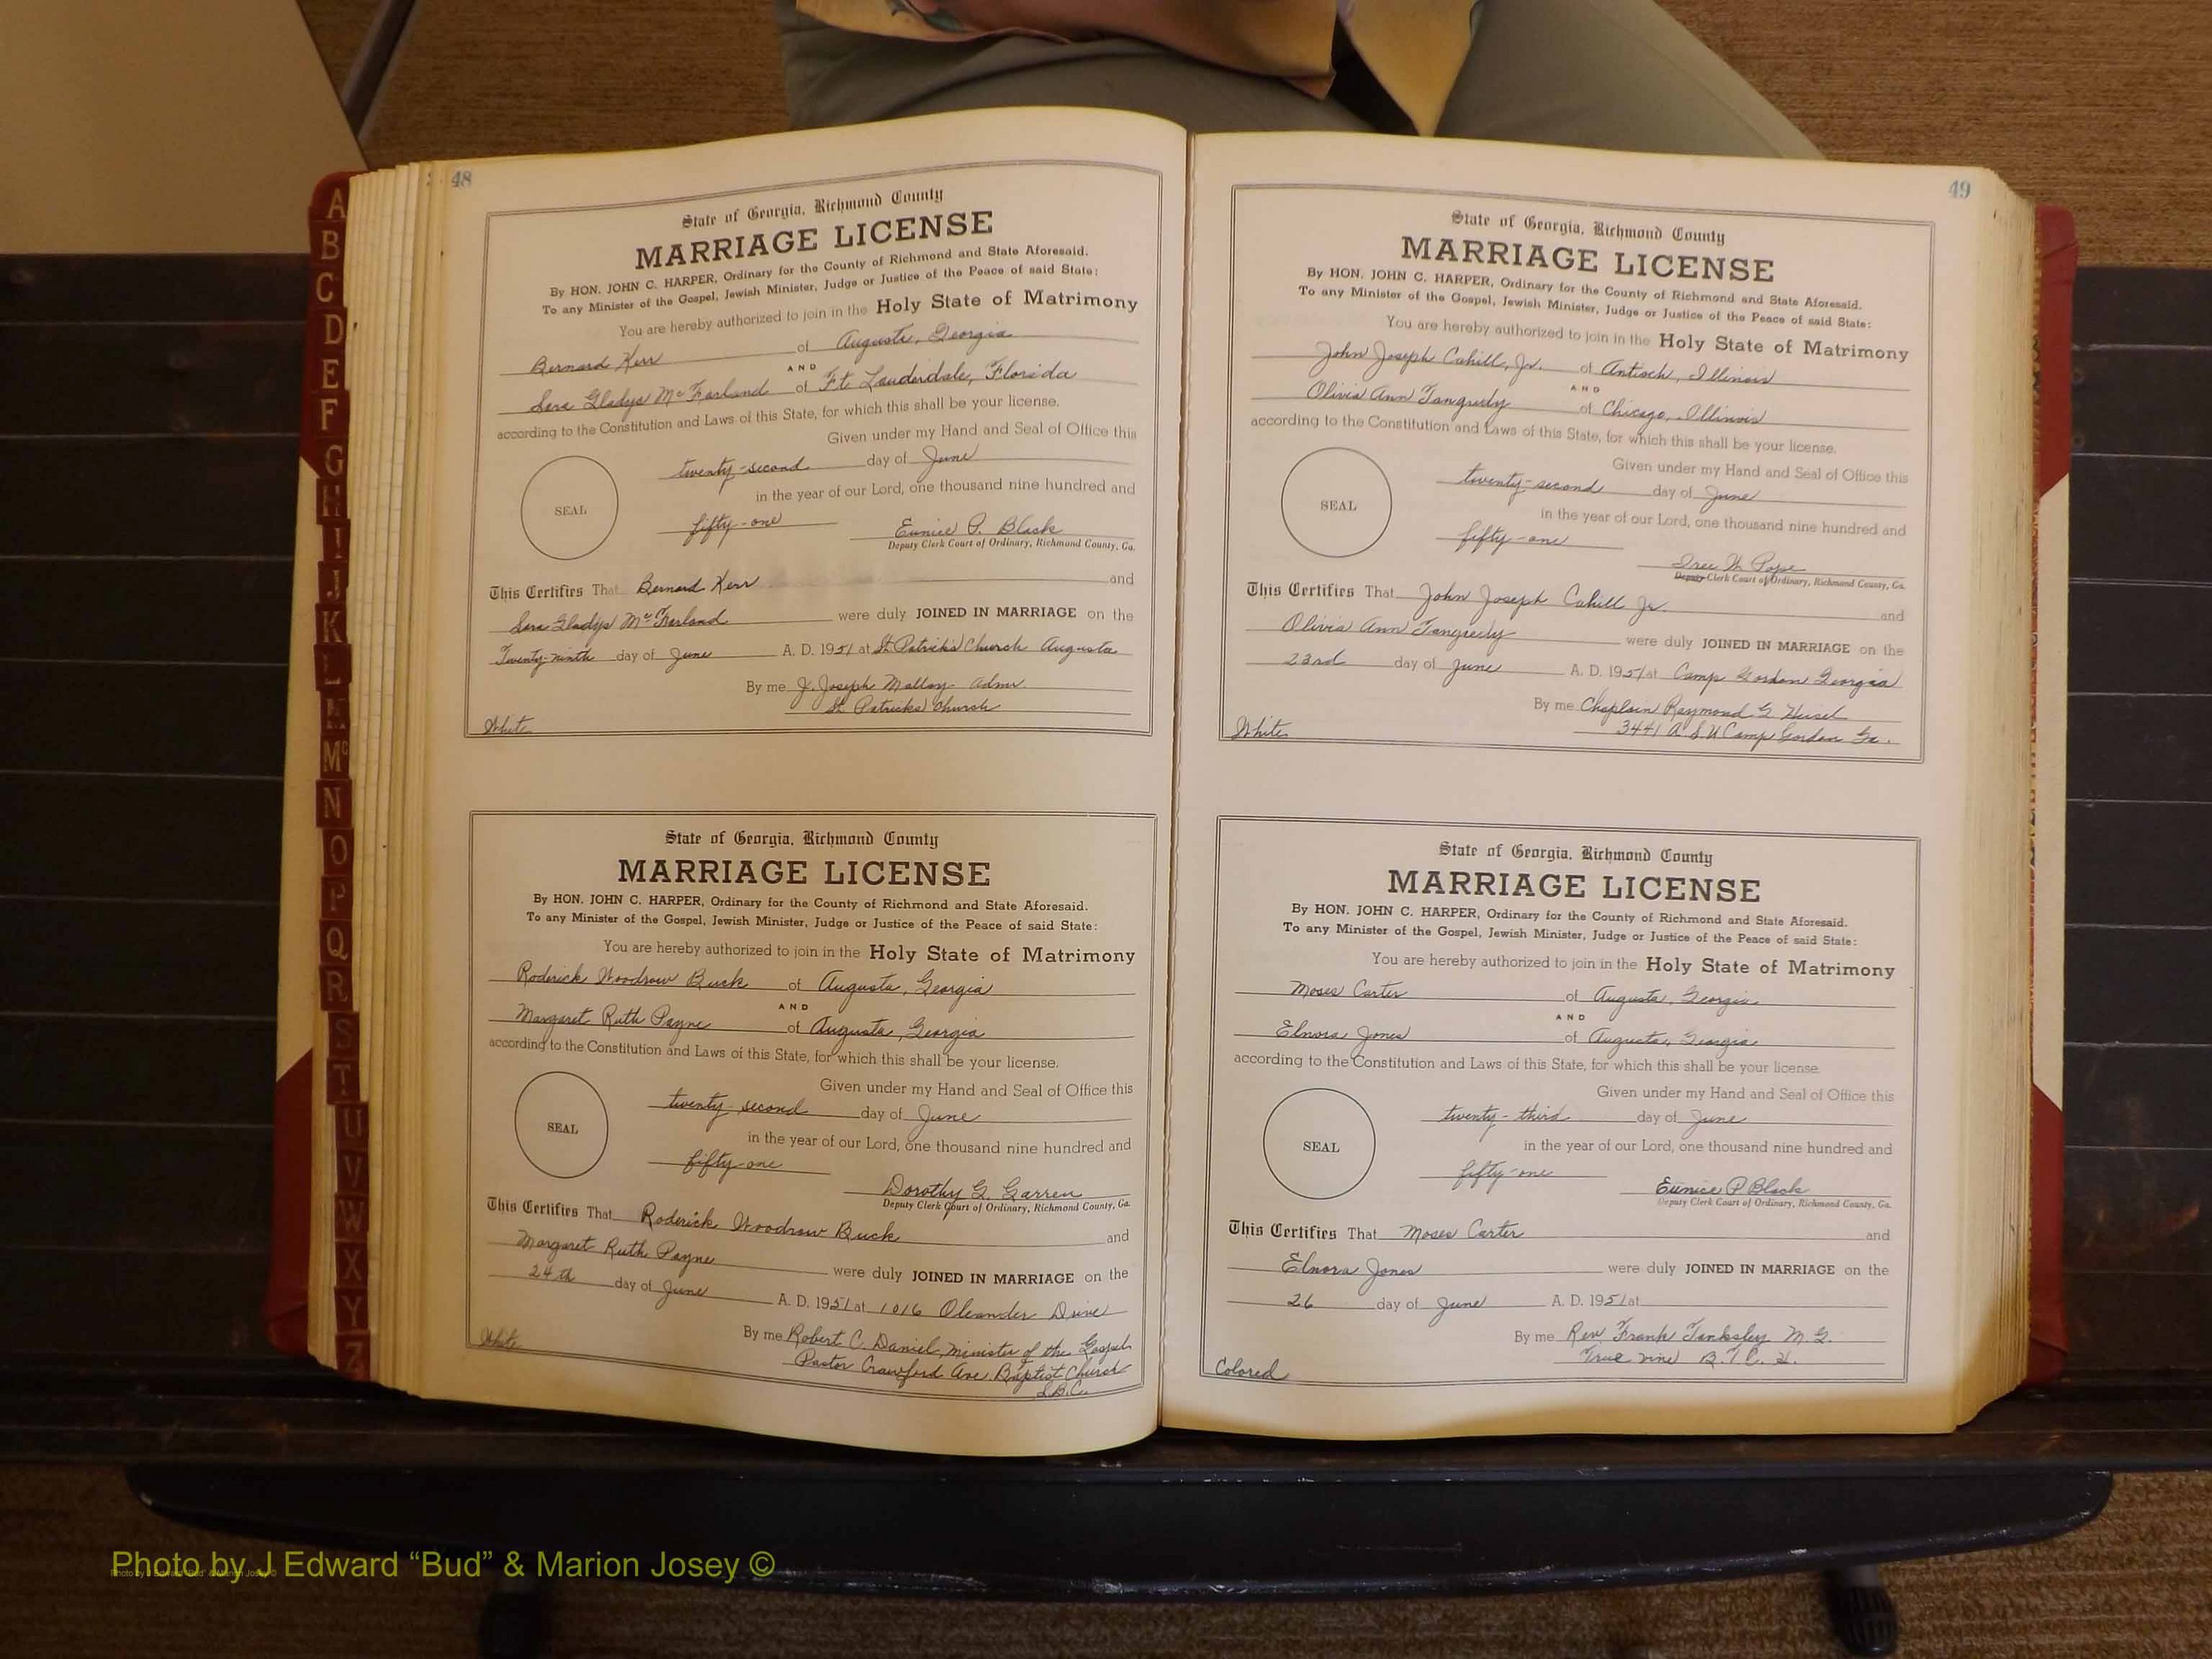 48
State of Georgia, Richmond County
MARRIAGE LICENSE
By HON. JOHN C. HARPER, Ordinary for the County of Richmond and State Aforesaid.
To any Minister of the Gospel, Jewish Minister, Judge or Justice of the Peace of said State:
You are hereby authorized to join in the Holy State of Matrimony
Bernard Kerr of Augusta, Georgia
AND
Sara Gladys McFarland of Ft Lauderdale, Florida
according to the Constitution and Laws of this State, for which this shall be your license.
Given under my Hand and Seal of Office this
twenty-second day of June
in the year of our Lord, one thousand nine hundred and
SEAL
fifty-one Eunice P. Black
Deputy Clerk Court of Ordinary, Richmond County, Ga.
This Certifies That Bernard Kerr and
Sara Gladys McFarland were duly JOINED IN MARRIAGE on the
Twenty-ninth day of June A. D. 1951 at St Patricks Church Augusta
By me J. Joseph Malloy - Admr.
St Patricks Church
White
State of Georgia, Richmond County
MARRIAGE LICENSE
By HON. JOHN C. HARPER, Ordinary for the County of Richmond and State Aforesaid.
To any Minister of the Gospel, Jewish Minister, Judge or Justice of the Peace of said State:
You are hereby authorized to join in the Holy State of Matrimony
Roderick Woodrow Buck of Augusta, Georgia
AND
Margaret Ruth Payne of Augusta, Georgia
according to the Constitution and Laws of this State, for which this shall be your license.
Given under my Hand and Seal of Office this
twenty-second day of June
SEAL
in the year of our Lord, one thousand nine hundred and
fifty-one Dorothy G. Garren
Deputy Clerk Court of Ordinary, Richmond County, Ga.
This Certifies That Roderick Woodrow Buck and
Margaret Ruth Payne were duly JOINED IN MARRIAGE on the
24th day of June A. D. 1951 at 1016 Oleander Drive
By me Robert C. Daniel, minister of the Gospel
White
Pastor Crawford Ave. Baptist Church
S.B.C.
49
State of Georgia, Richmond County
MARRIAGE LICENSE
By HON. JOHN C. HARPER, Ordinary for the County of Richmond and State Aforesaid.
To any Minister of the Gospel, Jewish Minister, Judge or Justice of the Peace of said State:
You are hereby authorized to join in the Holy State of Matrimony
John Joseph Cahill, Jr. of Antioch, Illinois
AND
Olivia Ann of Chicago, Illinois
according to the Constitution and Laws of this State, for which this shall be your license.
Given under my Hand and Seal of Office this
twenty-second day of June
SEAL
in the year of our Lord, one thousand nine hundred and
fifty-one
W. Pope
Deputy Clerk Court of Ordinary, Richmond County, Ga.
This Certifies That John Joseph Cahill Jr. and
Olivia Ann were duly JOINED IN MARRIAGE on the
23rd day of June A. D. 1951 at Camp Gordon Georgia
By me Chaplain Raymond G. Heisel
White 3441 A S U Camp Gordon Ga.
State of Georgia, Richmond County
MARRIAGE LICENSE
By HON. JOHN C. HARPER, Ordinary for the County of Richmond and State Aforesaid.
To any Minister of the Gospel, Jewish Minister, Judge or Justice of the Peace of said State:
You are hereby authorized to join in the Holy State of Matrimony
Moses Carter of Augusta, Georgia
AND
Elnora Jones of Augusta, Georgia
according to the Constitution and Laws of this State, for which this shall be your license.
Given under my Hand and Seal of Office this
twenty-third day of June
SEAL
in the year of our Lord, one thousand nine hundred and
fifty-one Eunice P Black
Deputy Clerk Court of Ordinary, Richmond County, Ga.
This Certifies That Moses Carter and
Elnora Jones were duly JOINED IN MARRIAGE on the
26 day of June A. D. 1951 at
By me Rev Frank Tanksley M. G.
True vine B. T. C. H.
Colored
A
B
C
D
E
F
G
H
I
J
K
L
M
Mc
N
O
P
Q
R
S
T
U
V
W
X
Y
Z
Photo by J Edward “Bud” & Marion Josey ©
Photo by J Edward "Bud" & Marion Josey ©